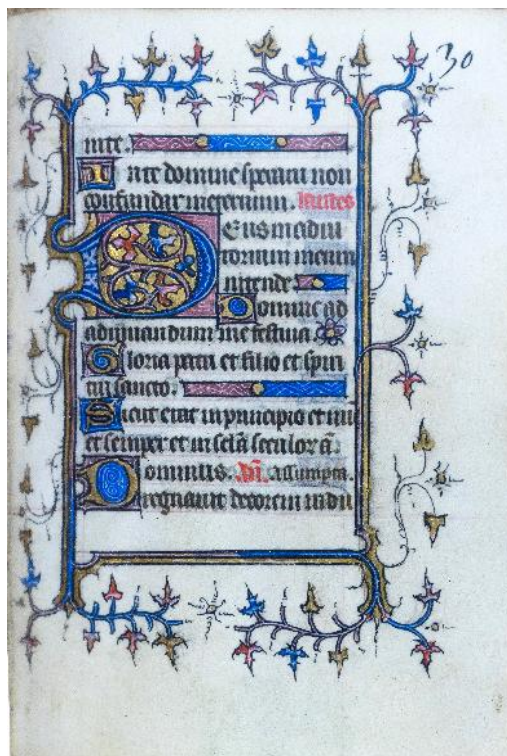 30
in te.
In te domine speraui non
confundar in eternum. laudes
Deus in adiu
torium meum
intende.
Domine ad
adiuuandum me festina.
Gloria patri et filio et spiri
tui sancto.
Sicut erat in principio et nu
et semper et in sclā seculor ā
Dominus. Añ. Assumpta.
regnauit decorem indu